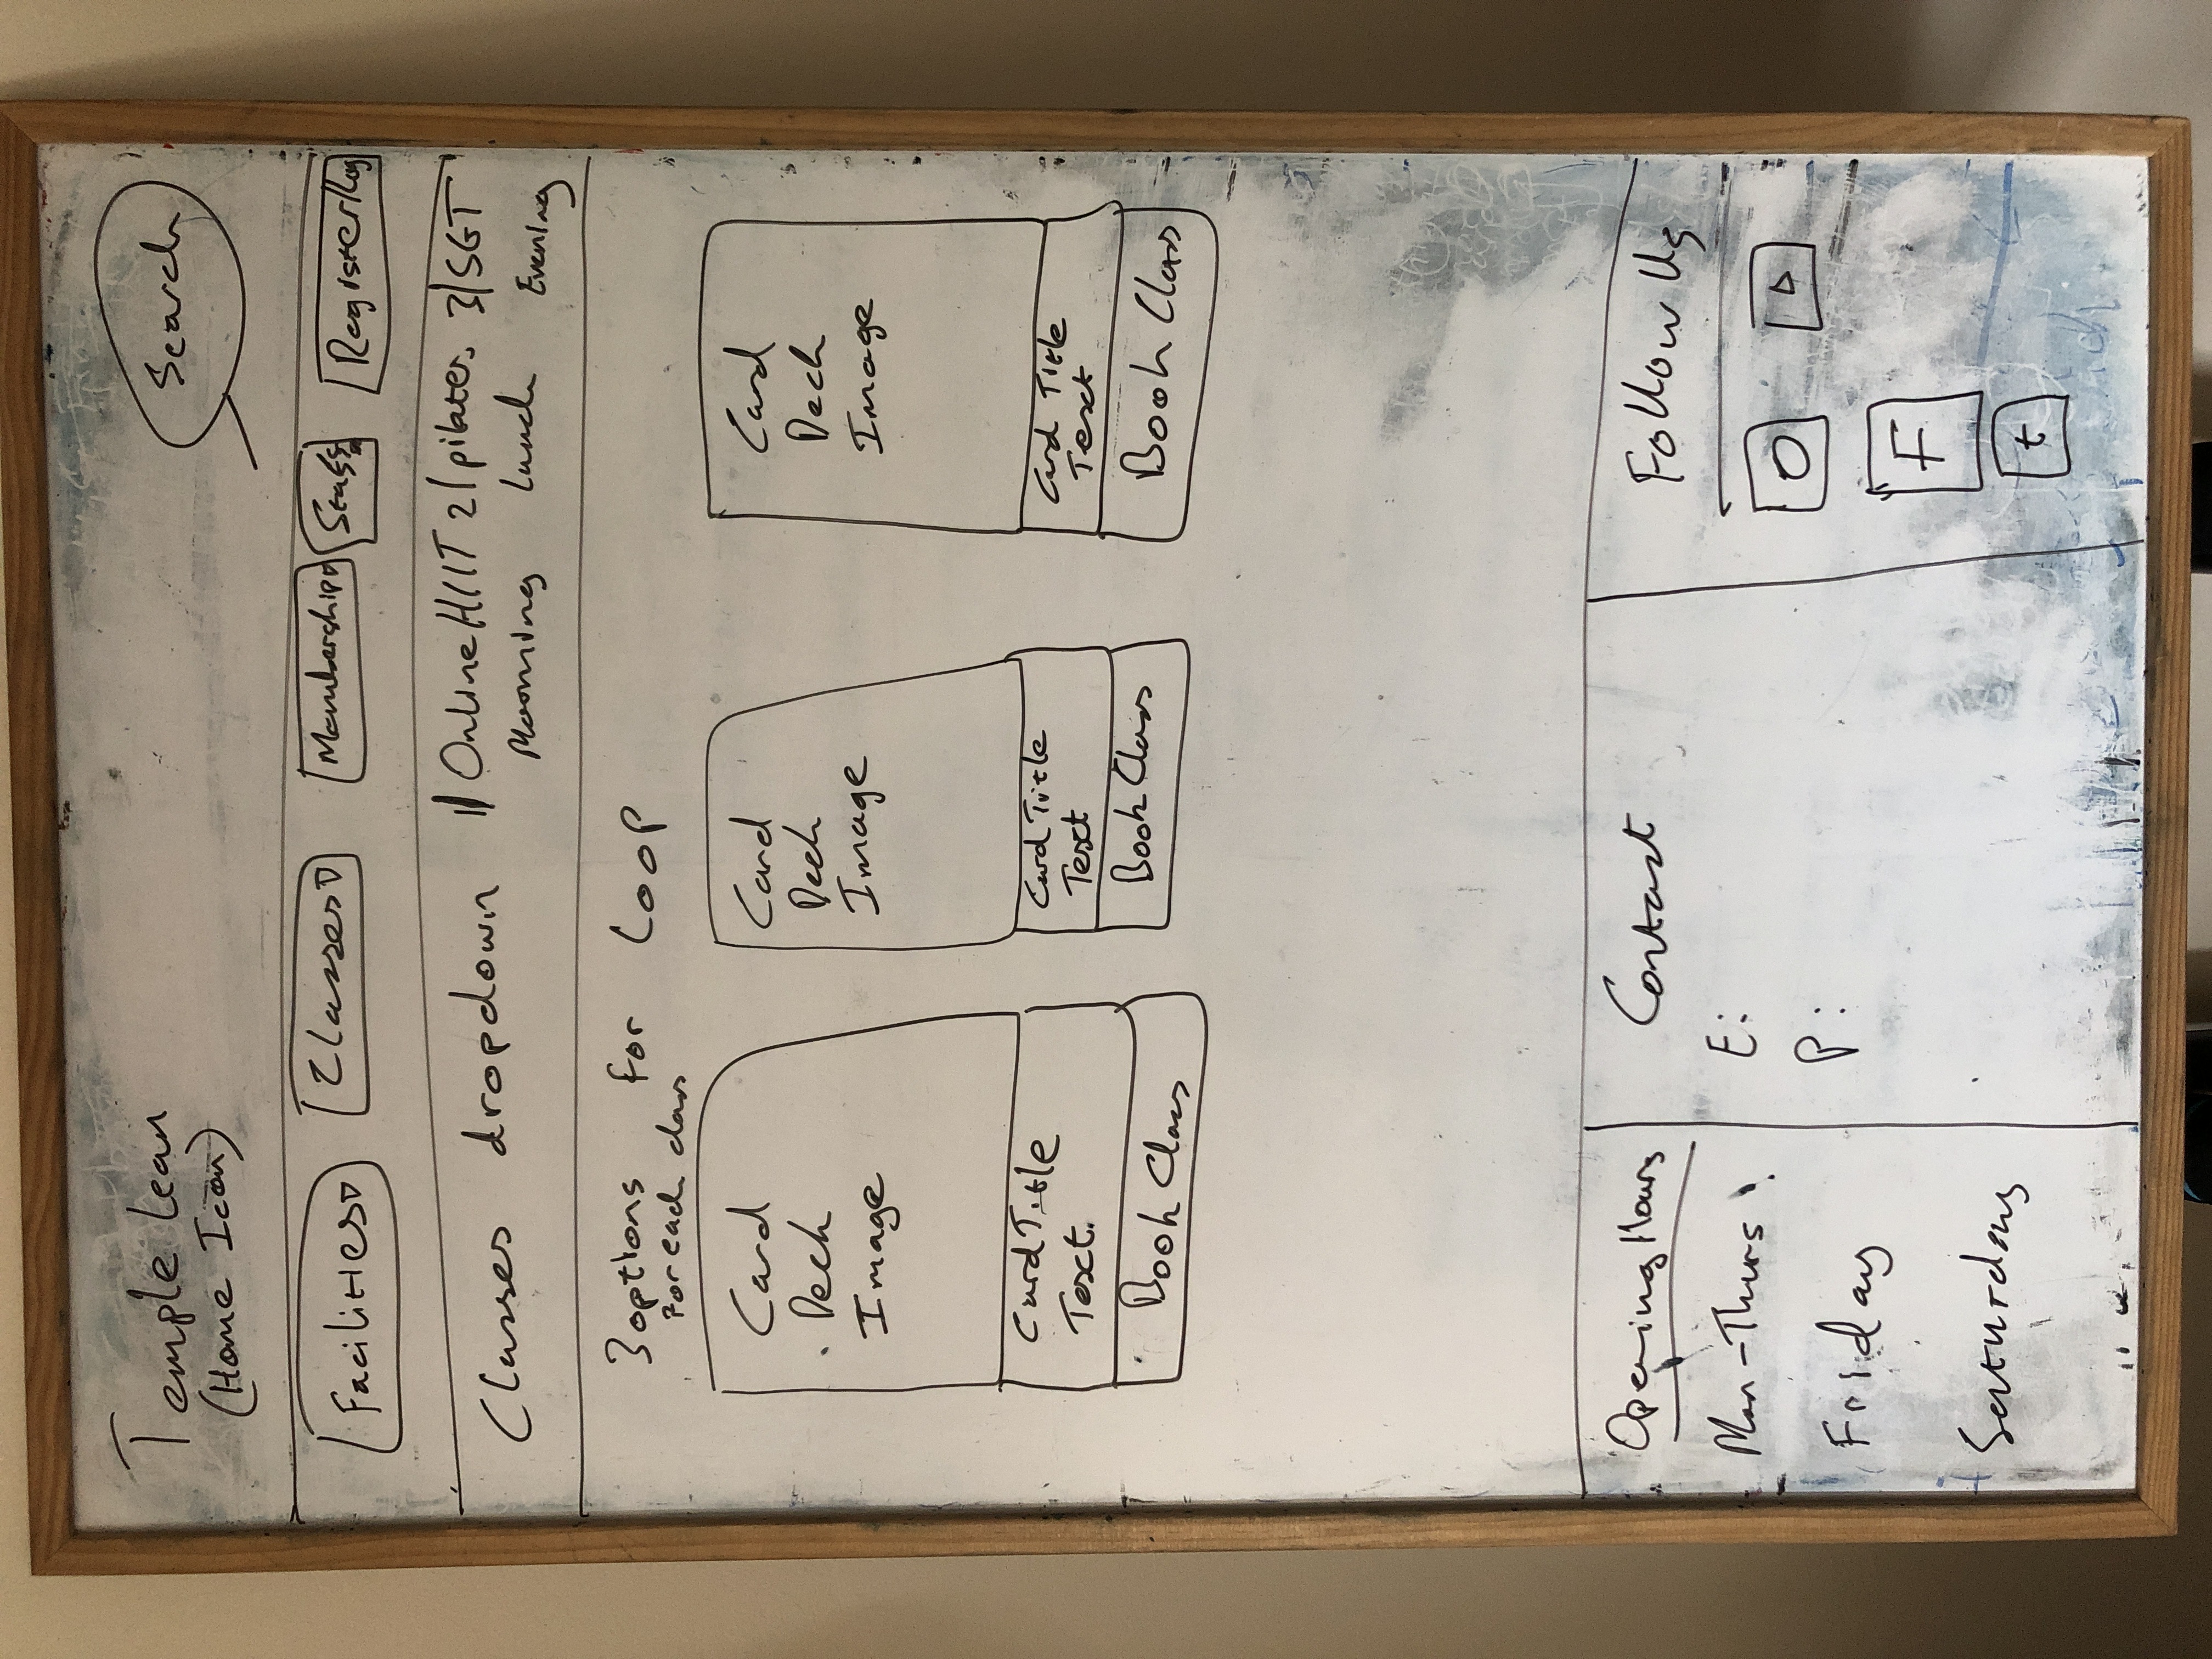 Temple Lean
(Home Icon)
Search
Facilities
Classes
Membership
Staff
Register/log
Classes dropdown 1/ Online HIIT 2/ pilates 3/ SGT
Morning lunch Evening
3 options For Loop
For each class
Card
Deck
Image
Card Title
Text.
Book Class
Card
Deck
Image
Card Title
Text
Book Class
Card
Deck
Image
Card Title
Text
Book Class
Opening Hours
Mon-Thurs:
Friday
Saturday
Contact
E:
P:
Follow Us
F
t